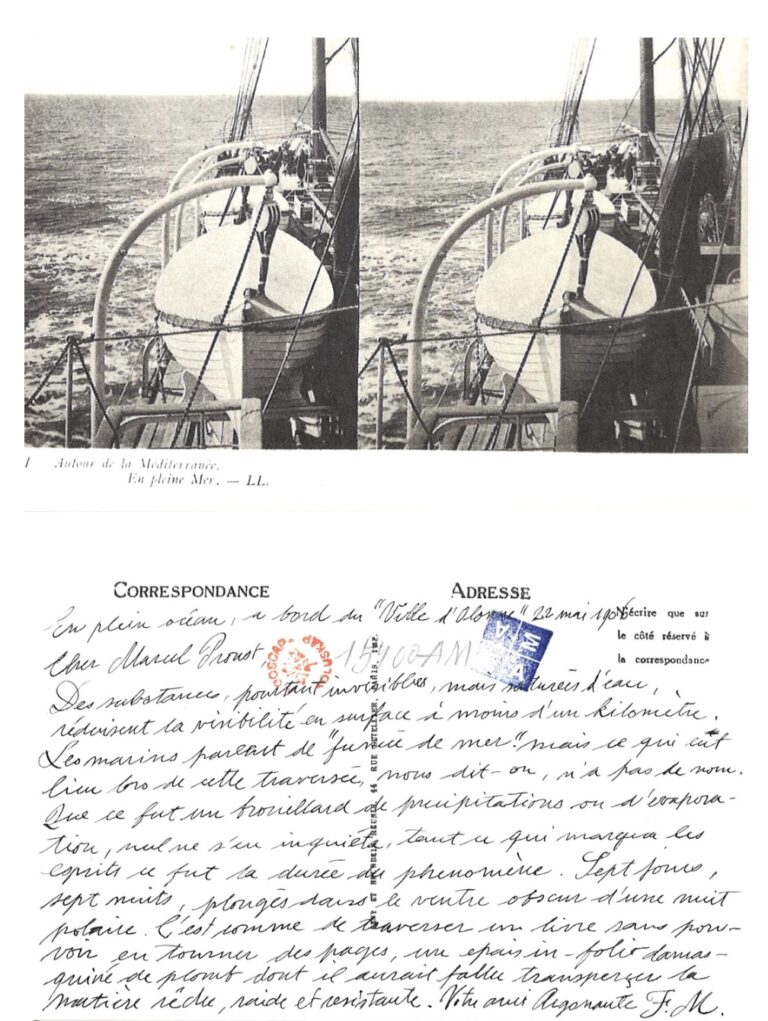 1 Autour de la Méditerranée.
En pleine Mer. — LL.
CORRESPONDANCE
ADRESSE
N'écrire que sur
le côté réservé à
la correspondance
En plein océan, a bord du "Ville d'Olonne" 22 mai 1906
Cher Marcel Proust,
15h00 AM
Des substances, pourtant invisibles, mais saturées d'eau,
réduisent la visibilité en surface à moins d'un kilomètre.
Les marins parlent de "fumée de mer" mais ce qui eût
lieu lors de cette traversée, nous dit-on, n'a pas de nom.
Que ce fut un brouillard de précipitations ou d'évapora-
tion, nul ne s'en inquiéta, tant ce qui marqua les
esprits ce fut la durée du phenomène. Sept jours,
sept nuits, plongés dans le ventre obscur d'une nuit
polaire. C'est comme de traverser un livre sans pou-
voir en tourner des pages, un epais in-folio damas-
quiné de plomb dont il aurait fallu transperçer la
matière rêche, raide et resistante. Votre ami Argonaute F. M.